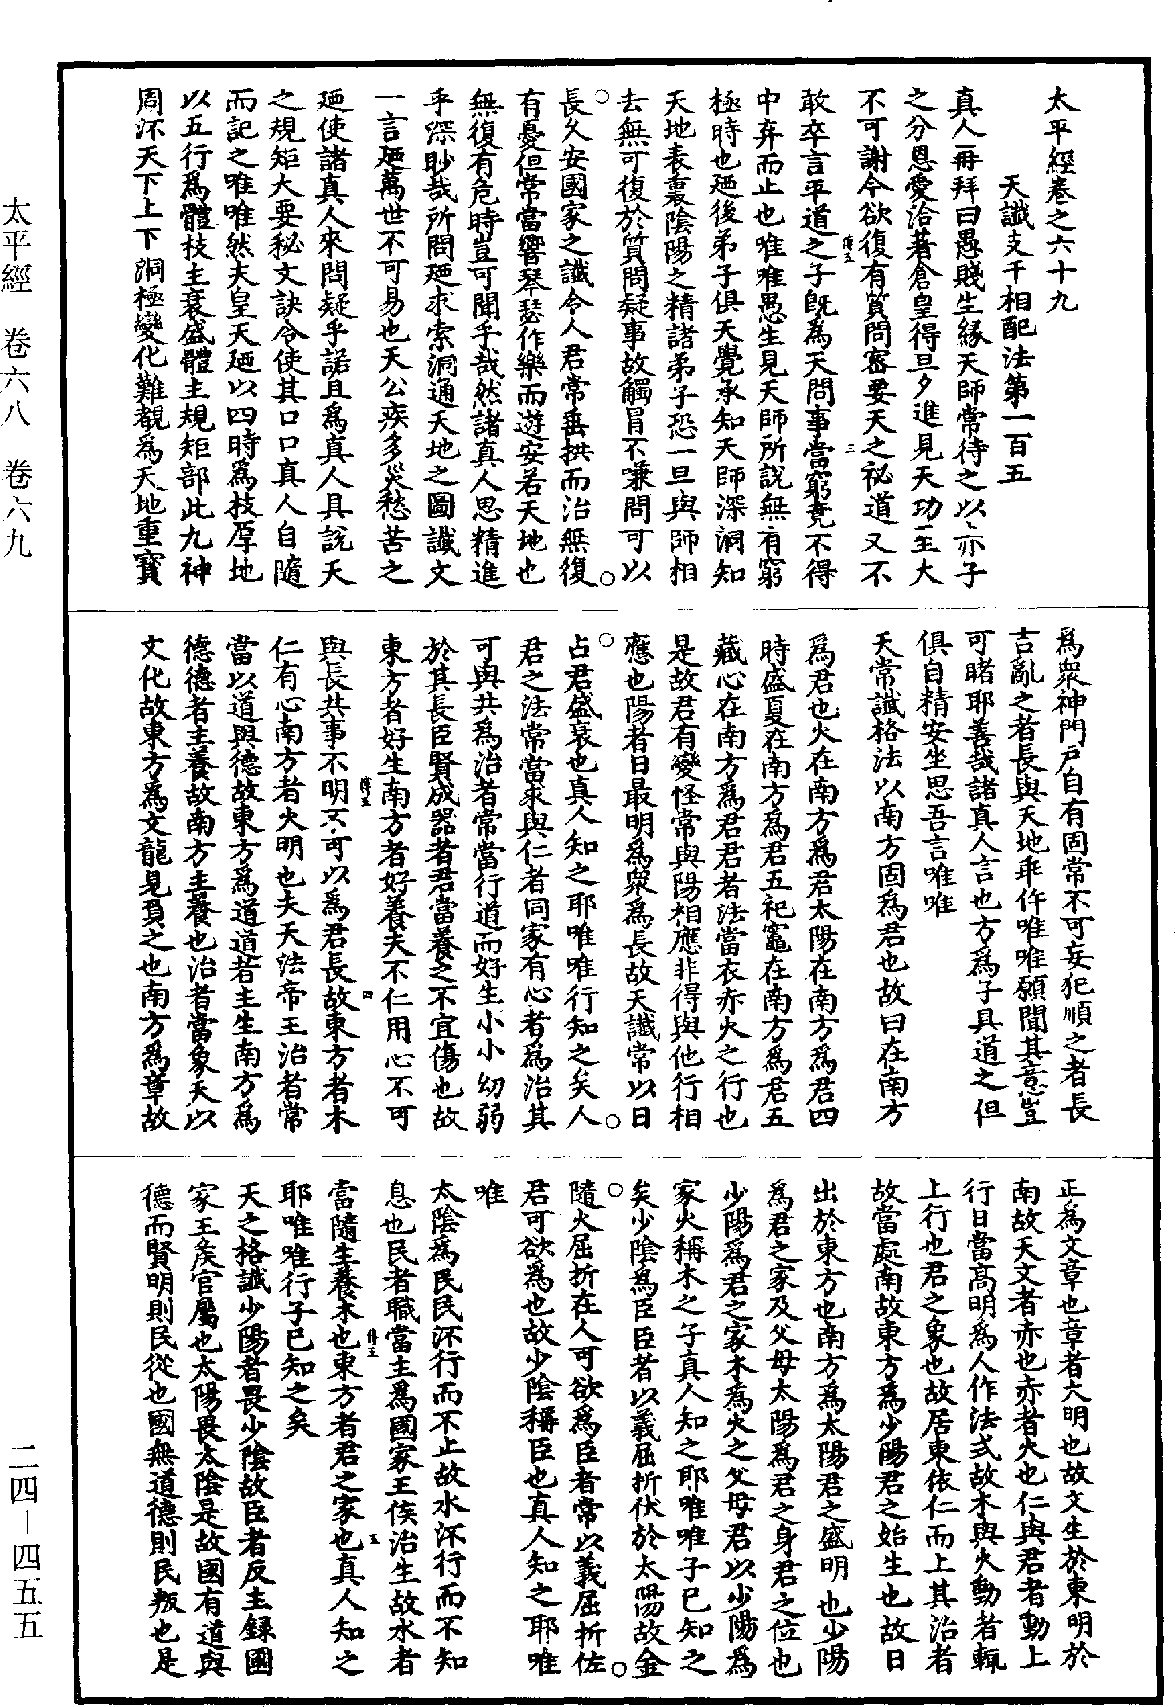 太平經卷之六十九
天讖支干相配法第一百五
真人再拜曰愚賤生緣天師常待之以亦子
之分恩愛洽著倉皇得旦夕進見天功至大
不可謝今欲復有質問密要天之祕道又不
敢卒言平道之子旣為天問事當窮竟不得
中弃而止也唯唯愚生見天師所說無有窮
極時也廼後弟子俱天覺承知天師深洞知
天地表裏陰陽之精諸弟子恐一旦與師相
去無可復於質問疑事故觸冒不嫌問可以
長久安國家之讖令人君常垂拱而治無復
有憂但常當響琴瑟作樂而遊安若天地也
無復有危時豈可聞乎哉然諸真人思精進
乎深眇哉所問廼求索洞通天地之圖讖文
一言廼萬世不可易也天公疾多災愁苦之
廼使諸真人來問疑乎諾且為真人具說天
之規矩大要秘文訣令使其口口真人自隨
而記之唯唯然夫皇天廼以四時為枝厚地
以五行為體枝主衰盛體主規矩部此九神
周流天下上下洞極變化難覩為天地重寶
為衆神門戶自有固常不可妄犯順之者長
吉亂之者長與天地乖忤唯唯願聞其意豈
可睹耶善哉諸真人言也方為子具道之但
俱自精安坐思吾言唯唯
天常讖格法以南方固為君也故曰在南方
為君也火在南方為君太陽在南方為君四
時盛夏在南方為君五祀竈在南方為君五
藏心在南方為君君者法當衣赤火之行也
是故君有變怪常與陽相應非得與他行相
應也陽者日最明為衆為長故天讖常以日
占君盛衰也真人知之耶唯唯行知之矣人
君之法常當求與仁者同家有心者為治其
可與共為治者常當行道而好生小小幼弱
於其長臣賢成器者君當養之不宜傷也故
東方者好生南方者好養夫不仁用心不可
與長共事不明不可以為君長故東方者木
仁有心南方者火明也夫天法帝王治者常
當以道與德故東方為道道者主生南方為
德德者主養故南方主養也治者當象天以
文化故東方為文龍見負之也南方為章故
正為文章也章者大明也故文生於東明於
南故天文者赤也赤者火也仁與君者動上
行日當高明為人作法式故木與火動者輒
上行也君之象也故居東依仁而上其治者
故當處南故東方為少陽君之始生也故日
出於東方也南方為太陽君之盛明也少陽
為君之家及父母太陽為君之身君之位也
少陽為君之家木為火之父母君以少陽為
家火稱木之子真人知之耶唯唯子已知之
矣少陰為臣臣者以義屈折伏於太陽故金
隨火屈折在人可欲為臣者常以義屈折佐
君可欲為也故少陰稱臣也真人知之耶唯
唯
太陰為民民流行而不止故水流行而不知
息也民者職當主為國家王侯治生故水者
當隨生養木也東方者君之家也真人知之
耶唯唯行子已知之矣
天之格讖少陽者畏少陰故臣者反主錄國
家王侯官屬也太陽畏太陰是故國有道與
德而賢明則民從也國無道德則民叛也是
太平經 卷六八 卷六九
二四—四五五